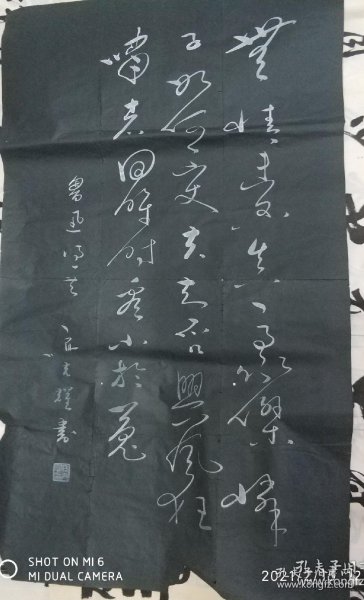 無情未必真豪傑憐
子如何不丈夫知否興風狂
嘯者回眸時看小於菟
魯迅詩一首
書
SHOT ON MI 6
MI DUAL CAMERA